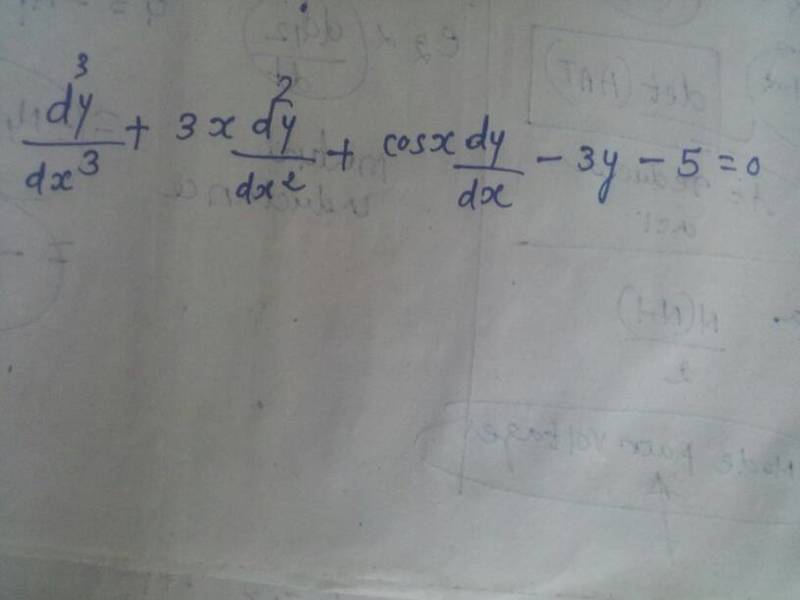 d³y/dx³ + 3x d²y/dx² + cosx dy/dx - 3y - 5 = 0